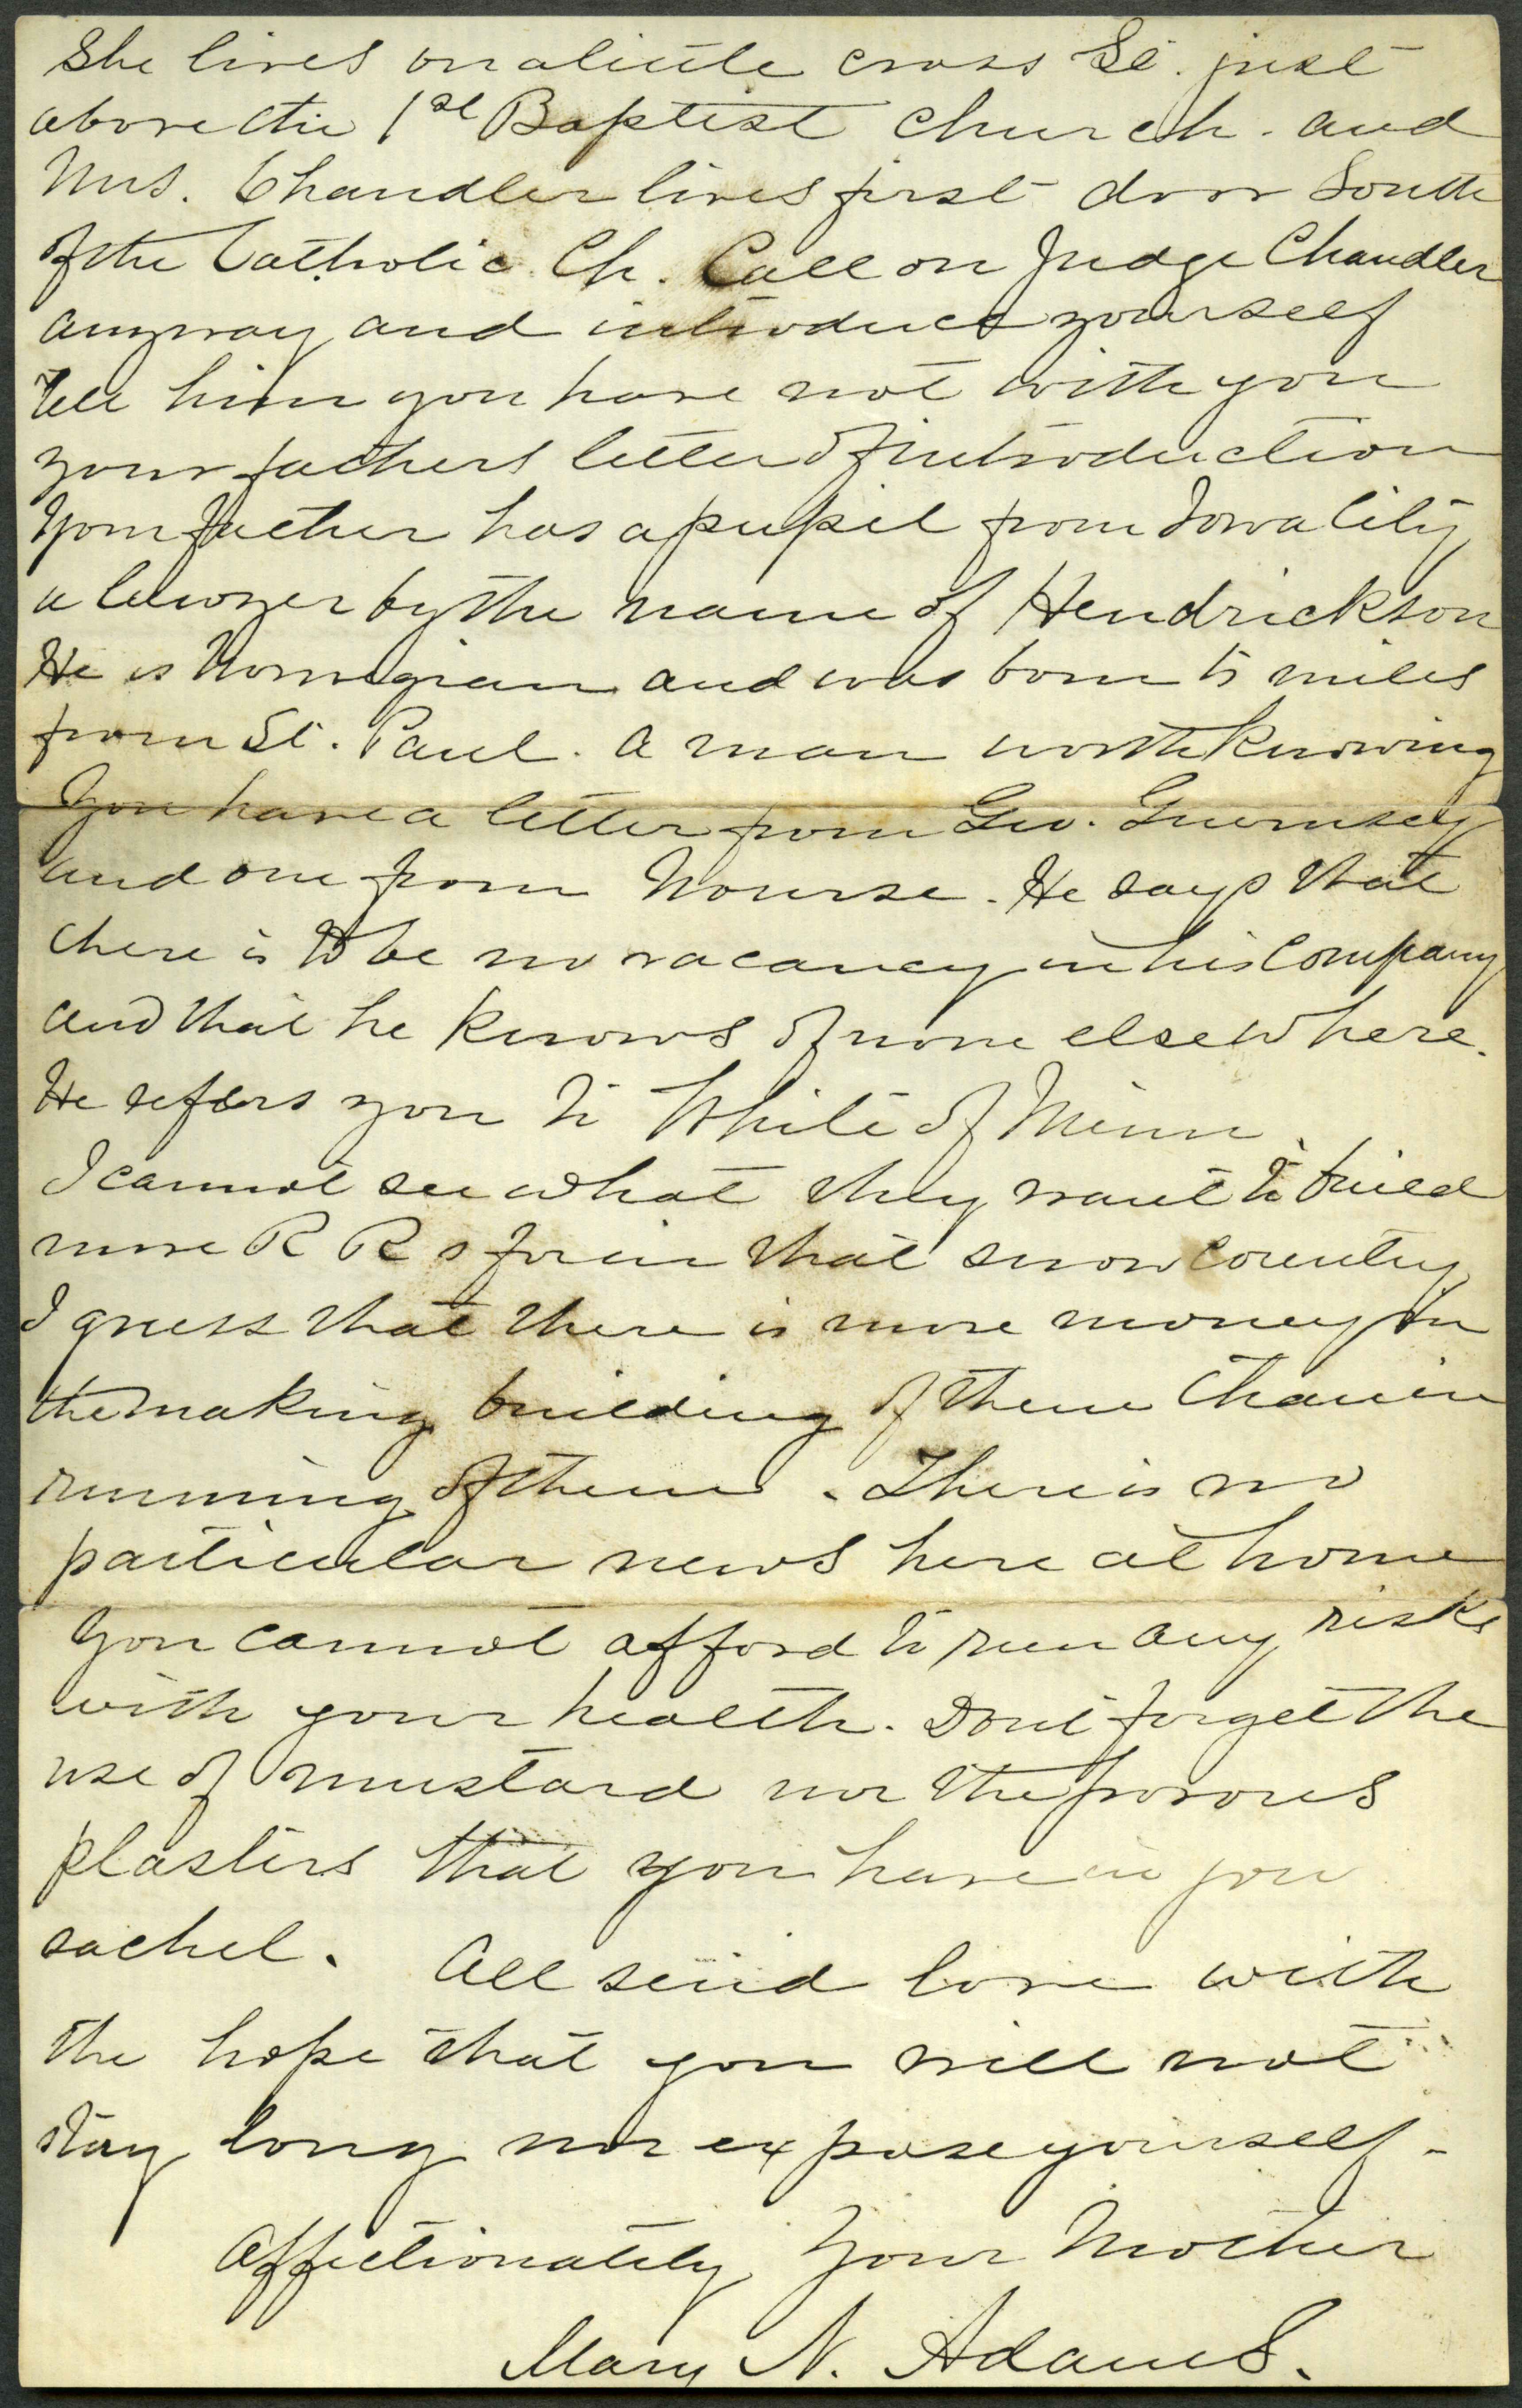 She lives on a little cross St. just
above the 1st Baptist Church. and
Mrs. Chandler lives first door South
of the Catholic Ch. Call on Judge Chandler
anyway and introduce yourself
tell him you have not with you
your fathers letter of introduction
Your father has a pupil from Iowa City
a lawyer by the name of Hendrickson
He is Norwegian and was born 15 miles
from St. Paul. A man worth knowing
You have a letter from Geo. Guernsey
and one from Nourse. He says that
there is to be no vacancy in his Company
and that he knows of none elsewhere.
He refers you to White of Minn.
I cannot see what they want to build
more R Rs for in that snow country
I guess that there is more money in
the making building of them than in
running of them. There is no
particular news here at home
You cannot afford to run any risks
with your health. Dont forget the
use of mustard nor the porous
plasters that you have in your
sachel. All send love with
the hope that you will not
stay long nor expose yourself -
Affectionately Your Mother
Mary N. Adams.